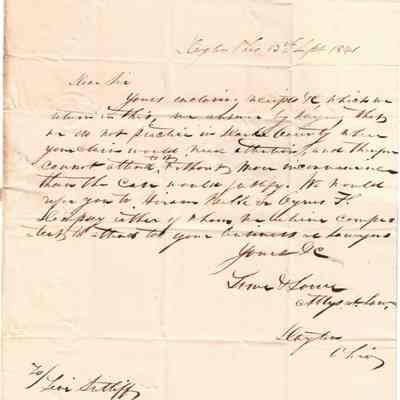 Dayton Ohio 13th Sept 1841
Dear Sir
Yours enclosing receipts &c, which we
return in this, we answer by saying that
we do not practice in County where
your claim would need attention, and therefore
cannot attend to it, without more inconvenience
than the case would justify. We would
refer you to Hiram or Cyrus F.
either of whom we believe compe
tent to attend to your business as lawyers
Yours &c
Lowe & Lowe
Attys at Law.
Dayton
Ohio
To/
Levi Sutliff